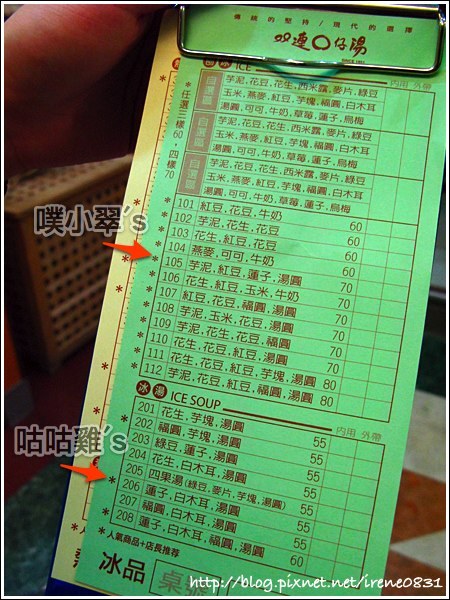 傳統的堅持/現代的選擇
雙連○仔湯
雪冰 ICE
內用 外帶
*任選三樣60,四樣70
自選區
芋泥,花豆,花生,西米露,麥片,綠豆
玉米,燕麥,紅豆,芋塊,福圓,白木耳
湯圓,可可,牛奶,草莓,蓮子,烏梅
自選區
芋泥,花豆,花生,西米露,麥片,綠豆
玉米,燕麥,紅豆,芋塊,福圓,白木耳
湯圓,可可,牛奶,草莓,蓮子,烏梅
自選區
芋泥,花豆,花生,西米露,麥片,綠豆
玉米,燕麥,紅豆,芋塊,福圓,白木耳
湯圓,可可,牛奶,草莓,蓮子,烏梅
* 101 紅豆,花豆,牛奶 60
* 102 芋泥,花豆,花生 60
* 103 花生,紅豆,花豆 60
* 104 燕麥,可可,牛奶 60
* 105 芋泥,紅豆,蓮子,湯圓 70
106 花生,紅豆,玉米,牛奶 70
107 紅豆,花豆,福圓,湯圓 70
* 108 芋泥,玉米,花豆,湯圓 70
109 芋泥,花生,花豆,福圓 70
* 110 花生,花豆,紅豆,湯圓 70
* 111 花生,花豆,紅豆,芋塊,湯圓 80
* 112 芋泥,花豆,紅豆,福圓,湯圓 80
冰湯 ICE SOUP
內用 外帶
* 201 花生,芋塊,湯圓 55
* 202 福圓,芋塊,湯圓 55
203 綠豆,蓮子,湯圓 55
204 花生,白木耳,湯圓 55
* 205 四果湯(綠豆,麥片,芋塊,湯圓) 55
* 206 蓮子,白木耳,湯圓 55
207 福圓,白木耳,湯圓 55
* 208 蓮子,白木耳,福圓 60
*人氣商品+店長推荐
冰品
桌號
噗小翠's
咕咕雞's
http://blog.pixnet.net/irene0831